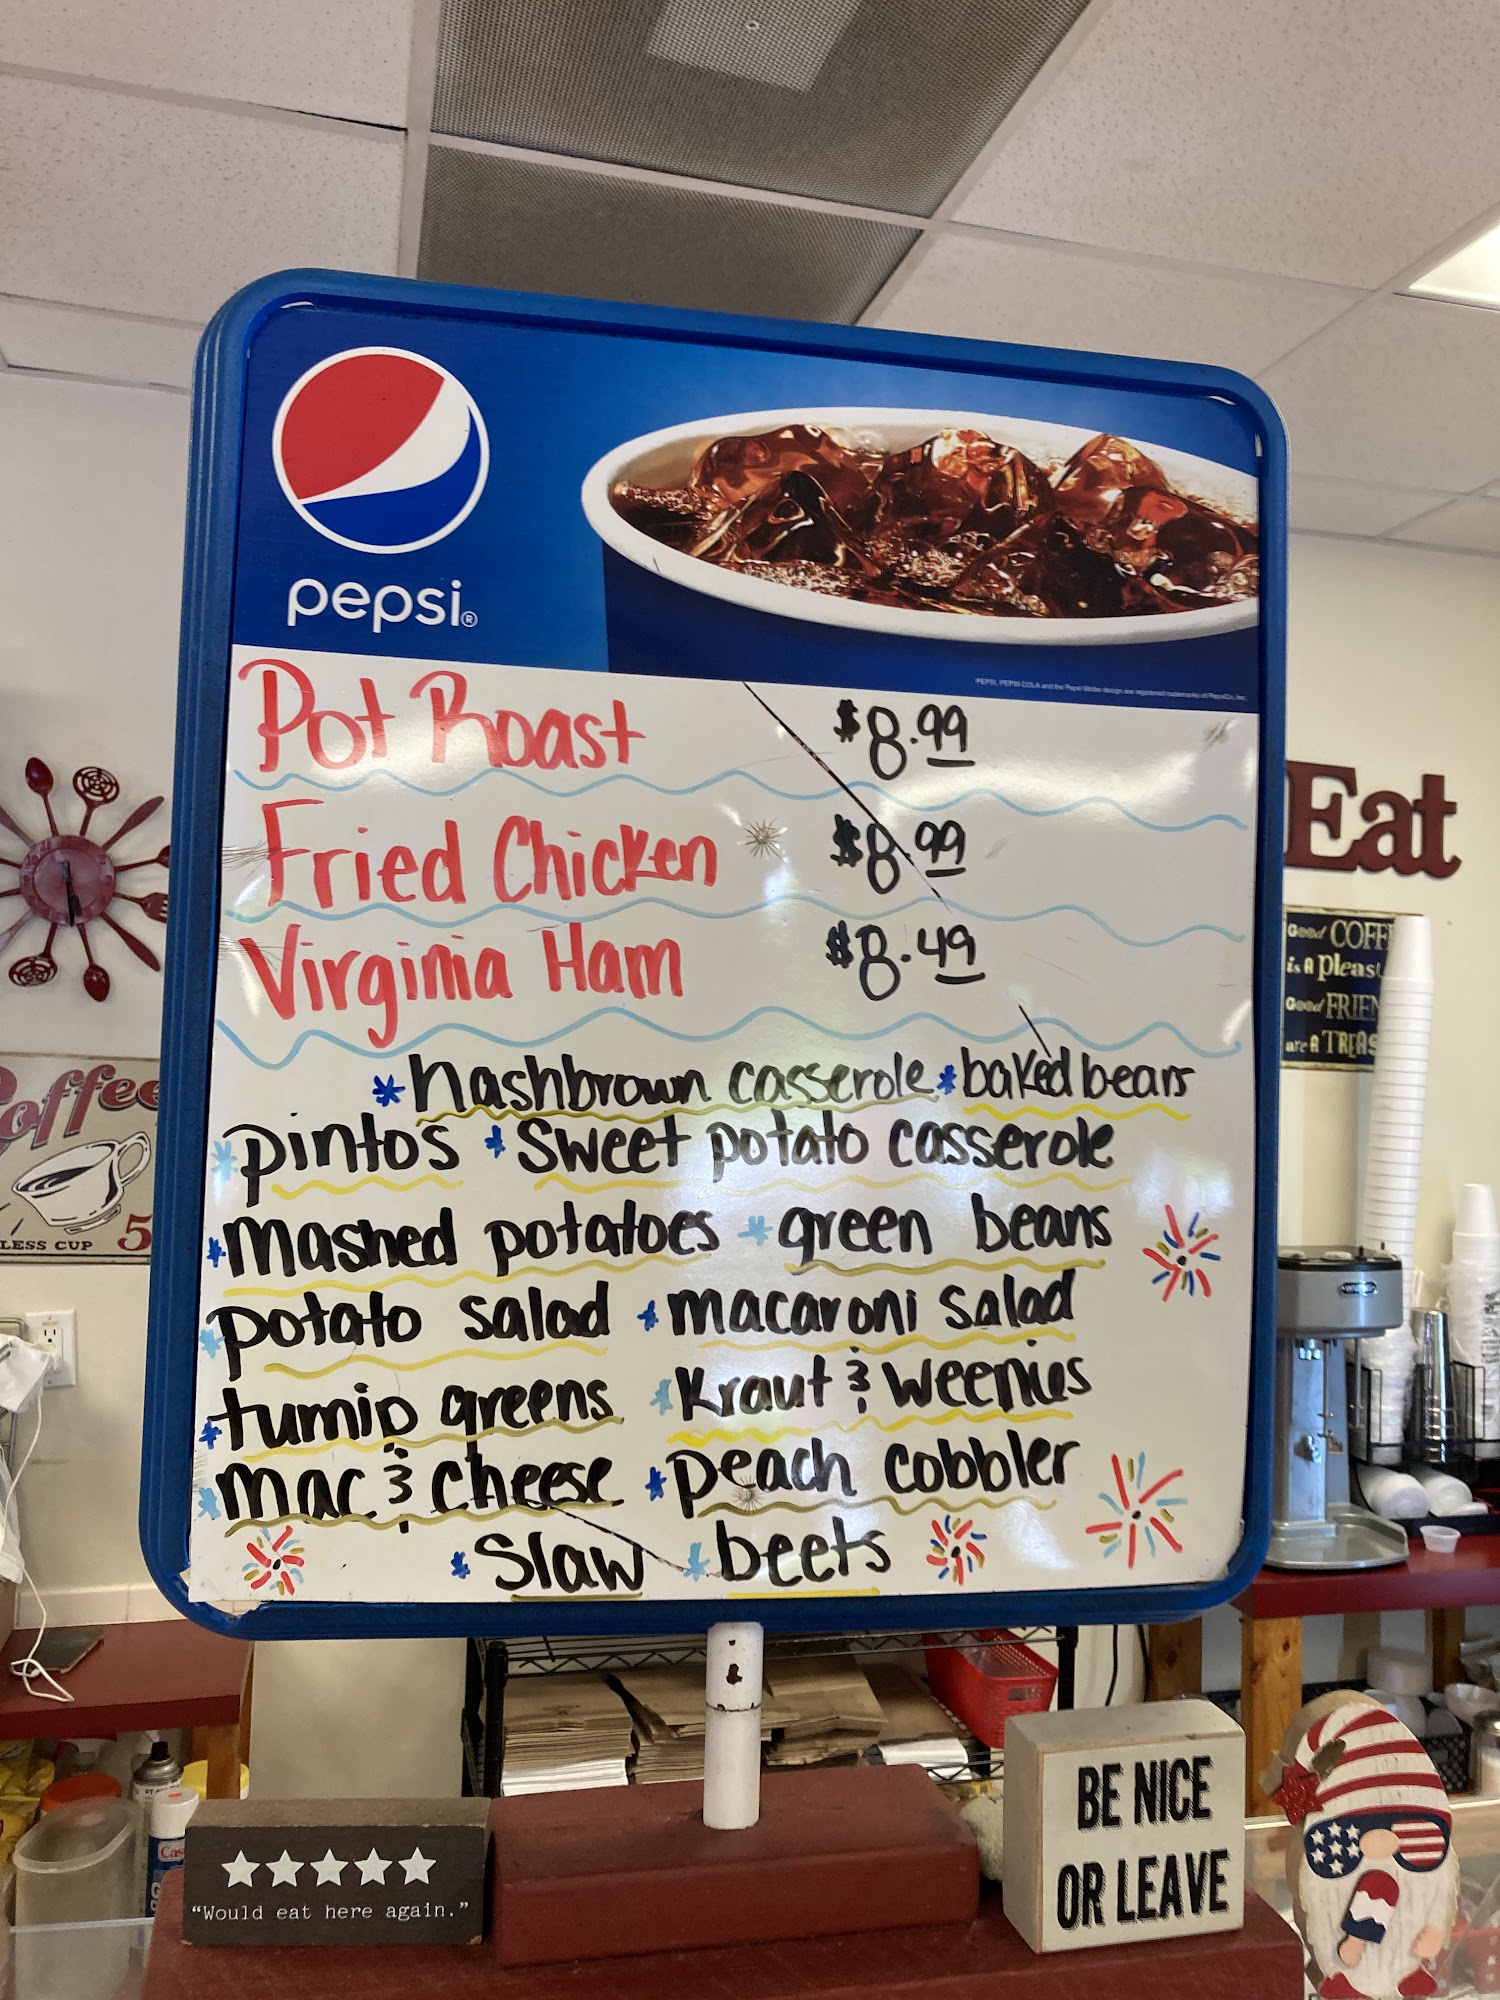 pepsi®
PEPSI, PEPSI-COLA and the Pepsi Globe design are registered trademarks of PepsiCo, Inc.
Pot Roast $8.99
Fried Chicken $8.99
Virginia Ham $8.49
*hashbrown casserole *baked beans
*pintos *sweet potato casserole
*mashed potatoes *green beans
*potato salad *macaroni salad
*turnip greens *Kraut & Weenies
*mac & cheese *peach cobbler
*slaw *beets
Eat
Good COFF
is A pleas
Good FRIEN
are A TREAS
offee
LESS CUP 5
"Would eat here again."
BE NICE
OR LEAVE